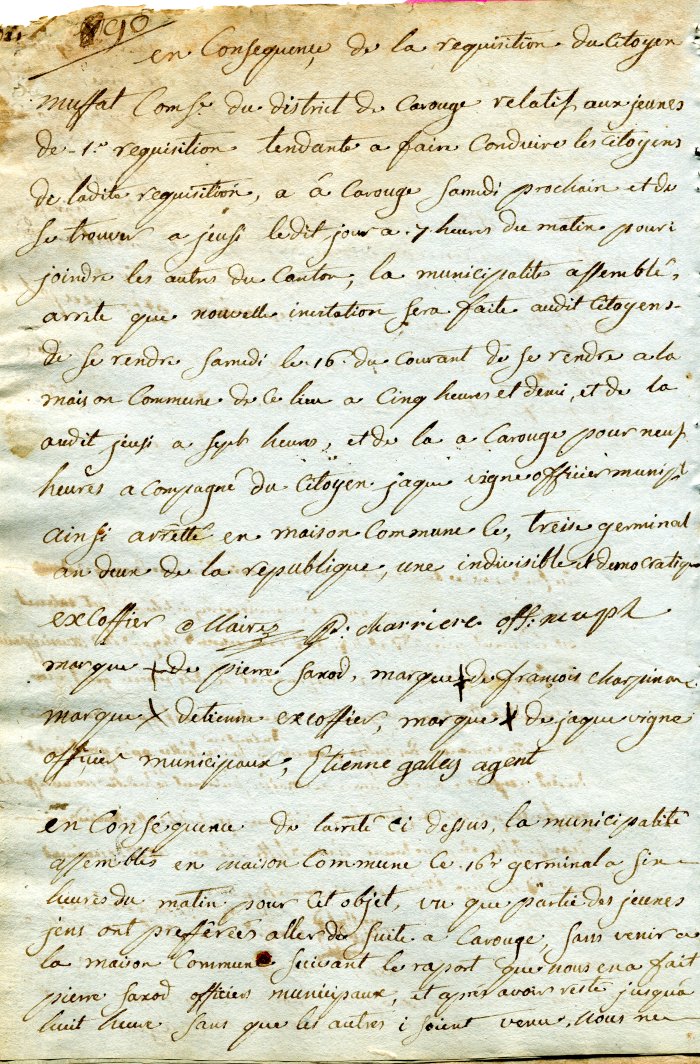 190
en Consequence de la requisition du Citoyen
muffat Comre. du district de Carouge relatif aux jeunes
de 1re requisition tendante a faire Conduire les Citoyens
de ladite requisition, a â Carouge Samdi prochain et de
se trouver a jeusi ledit jour a 7 heures du matin pour i
joindre les autres du Canton, la municipalité assemblé,
arrete que nouvelle invitation sera faite audit Citoyens
de se rendre Samedi le 16. du Courant de se rendre a la
maison Commune de Ce lieu a Cinq heures et demi, et de la
audit jeusi a sept heures, et de la a Carouge pour neuf
heures acompagné du Citoyen jaque vigne officier munipl
ainsi arretté en maison Commune Ce, treise germinal
an deux de la republique, une indivisible et democratique
excoffier Maire P. charriere off. muph
marque + de pierre saxod, marque + de françois charpinone
marque X detienne excoffier, marque X de jaque vigne
officiers municipaux, Etienne galley agent
en Conséquence de larreté ci dessus, la municipalité
assemblés en maison Commune ce 16r germinal a six
heures du matin pour Cet objet, vu que partie des jeunes
jens ont prefêrées aller de suite a Carouge, sans venir a
la maison Commune suivant le raport que nous en a fait
pierre saxod officiers municipaux, et apres avoir resté jusqua
huit heure sans que les autres i soient venu, nous ne